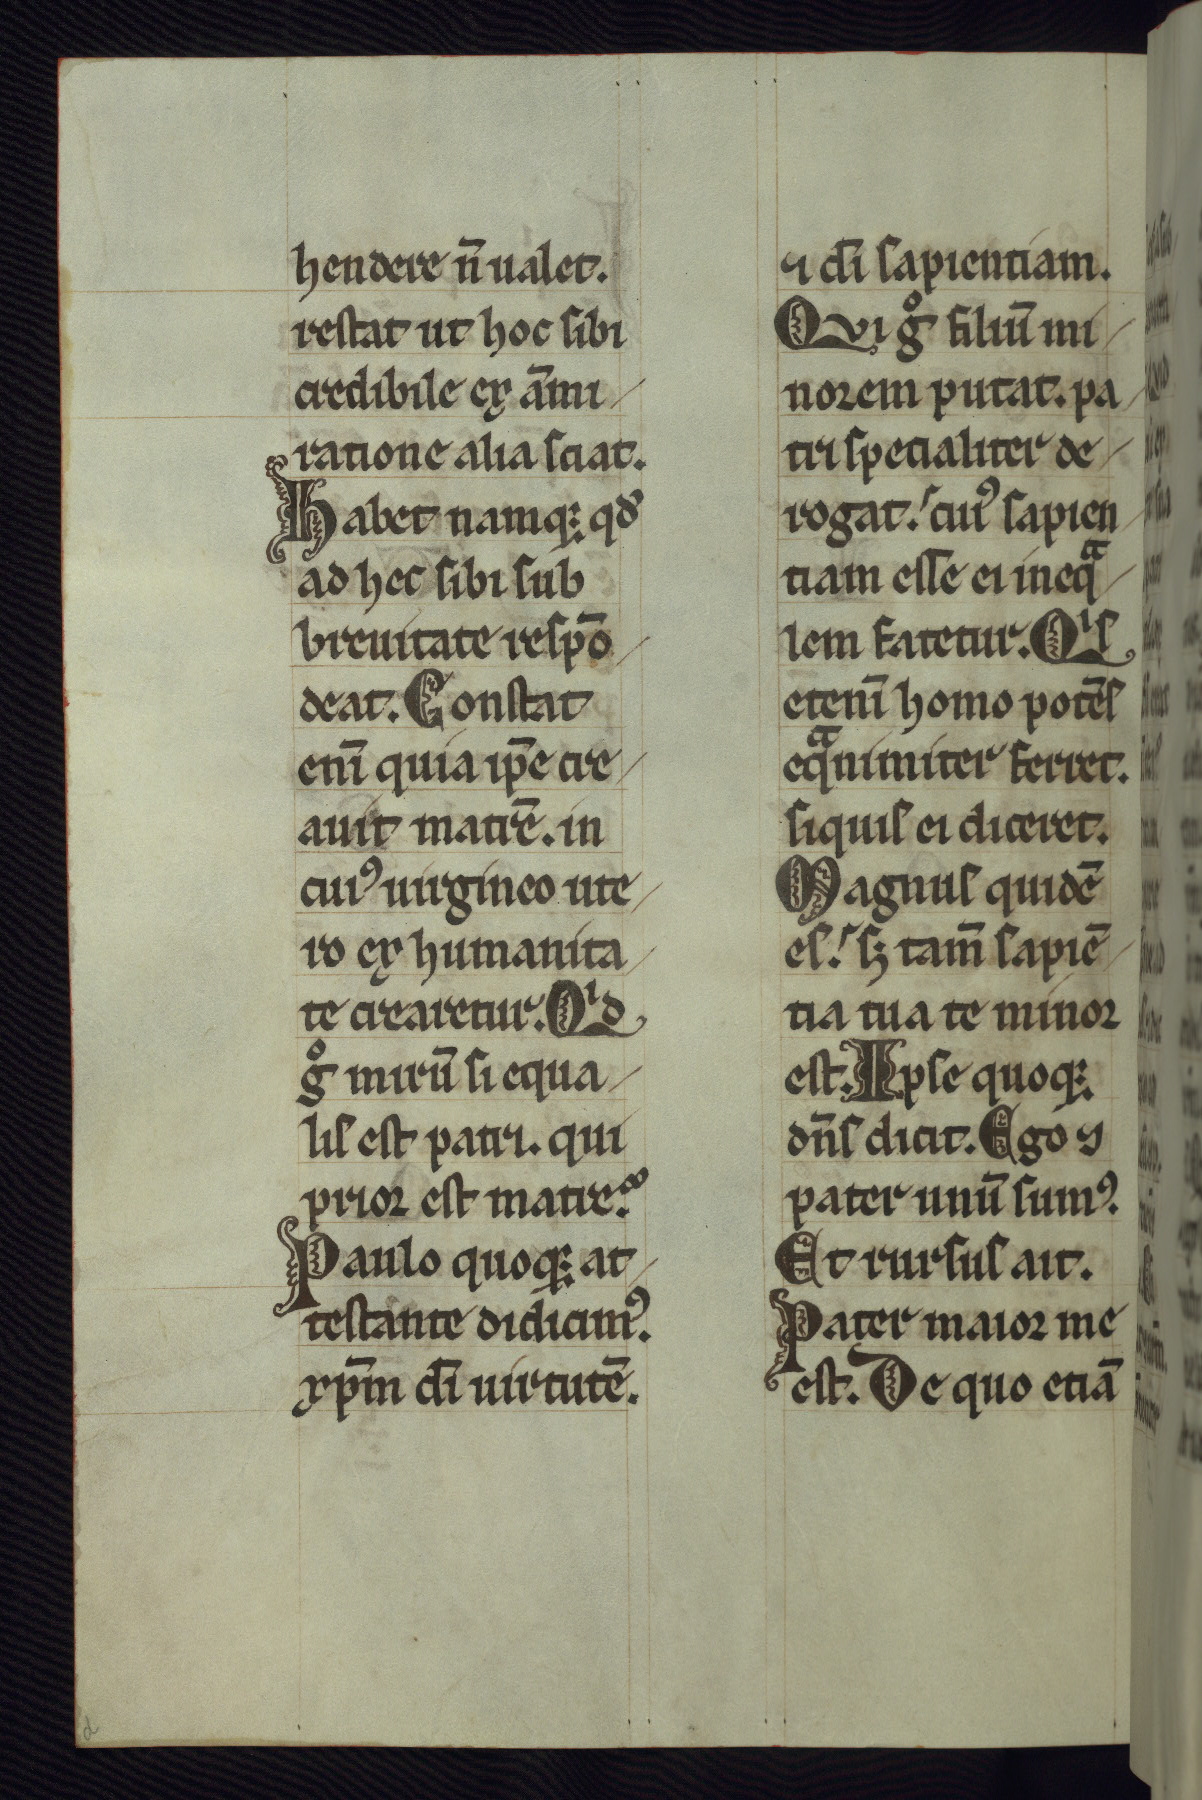 hendere n̄ ualet.
restat ut hoc sibi
credibile ex am̄i
ratione alia sciat.
Habet namq; qd̛
ad hec sibi sub
breuitate respō
deat. Constat
enī quia ip̄e cre
auit matrē. in
cuiꝰ uirgineo ute
ro ex humanita
te crearetur. Qͥd
gͦ mirū si equa
lis est patri. qui
prior est matre.
Paulo quoq; at
testante didicimꝰ.
xp̄m dī uirtutē.
⁊ dī sapientiam.
Qvi gͦ filiū mi
norem putat. pa
tri specialiter de
rogat. cuiꝰ sapien
tiam esse ei ineqᷓ
lem fatetur. Qͥs
etenī homo potēs
eqᷓnimiter ferret.
siquis ei diceret.
Magnus quidē
es. sꝫ tam̄ sapiē
tia tua te minor
est. Ipse quoq;
dn̄s dicit. Ego ⁊
pater unū sumꝰ.
Et rursus ait.
Pater maior me
est. De quo etiā
d